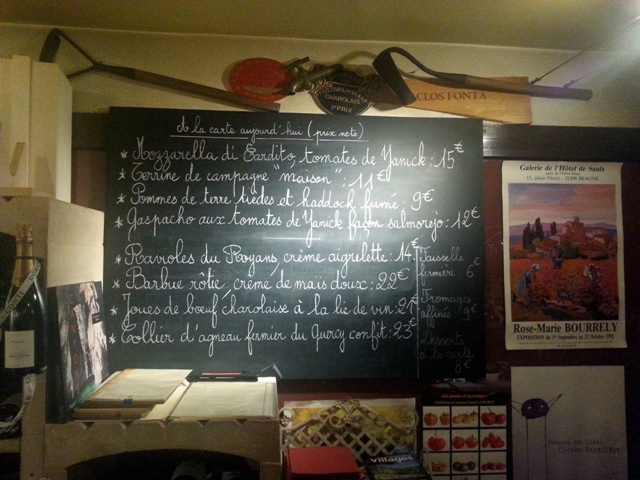 A la carte aujourd'hui (prix nets)
* Mozzarella di Cardito, tomates de Yanick : 15€
* Terrine de campagne "maison" : 11€
* Pommes de terre tièdes et haddock fumé : 9€
* Gaspacho aux tomates de Yanick façon salmorejo : 12€
* Ravioles du Royans, crème aigrelette : 14€
* Barbue rôtie, crème de maïs doux : 22€
* Joues de bœuf charolaise à la lie de vin : 21€
* Collier d'agneau fermier du Quercy confit : 23€
Faisselle
fermière 6€
Fromages
affinés 9€
Desserts
à la carte
8€
CHAROLAIS
1er PRIX
CLOS FONTA
Galerie de l'Hôtel de Saulx
Rose-Marie BOURRELY
villages